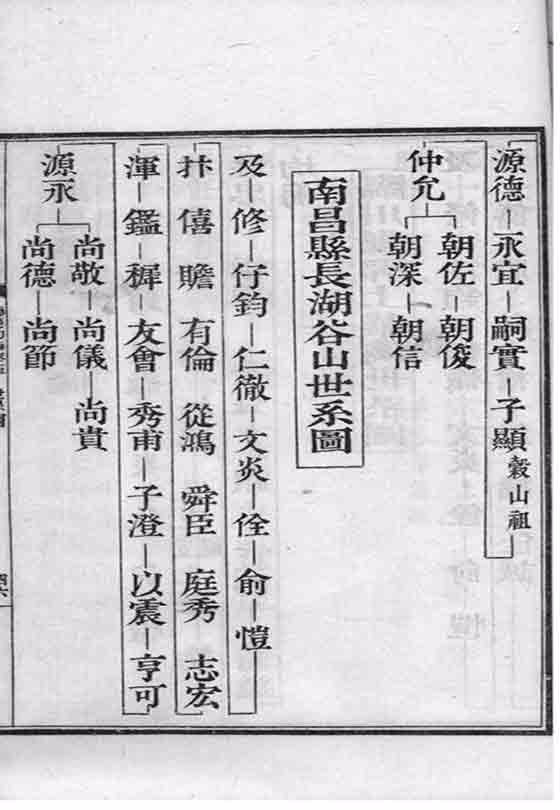 源德 永宜 嗣實 子顯 穀山祖
仲允
朝佐 朝俊
朝深 朝信
南昌縣長湖谷山世系圖
及 修 仔鈞 仁徹 文炎 佺 俞 愷
抃 僖 贍 有倫 從鴻 舜臣 庭秀 志宏
渾 鑑 穉 友會 秀甫 子澄 以震 亨可
源永
尚敬 尚儀 尚貴
尚德 尚節